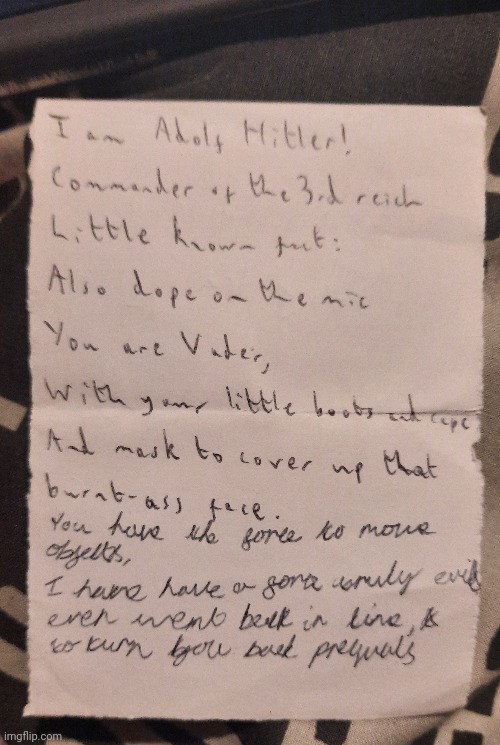 I am Adolf Hitler!
Commander of the 3rd reich
Little known fact:
Also dope on the mic
You are Vader,
With your little boots and cape
And mask to cover up that
burnt-ass face.
You have the force to move
objects,
I have a force truly evil
even went back in time,
to turn you back prequals
imgflip.com